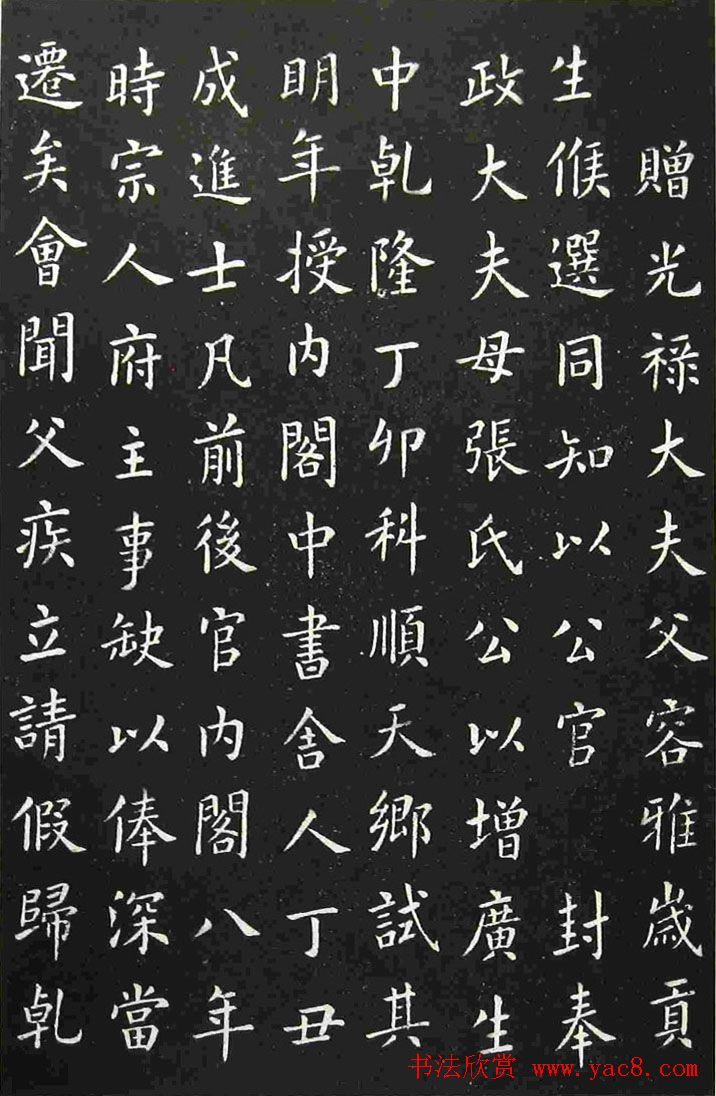 贈光祿大夫父容雅歲貢
生候選同知以公官 封奉
政大夫母張氏公以增廣生
中乹隆丁卯科順天鄉試其
明年授内閣中書舍人丁丑
成進士凡前後官内閣八年
時宗人府主事缺以俸深當
遷矣會聞父疾立請假歸乹
书法欣赏 www.yac8.com